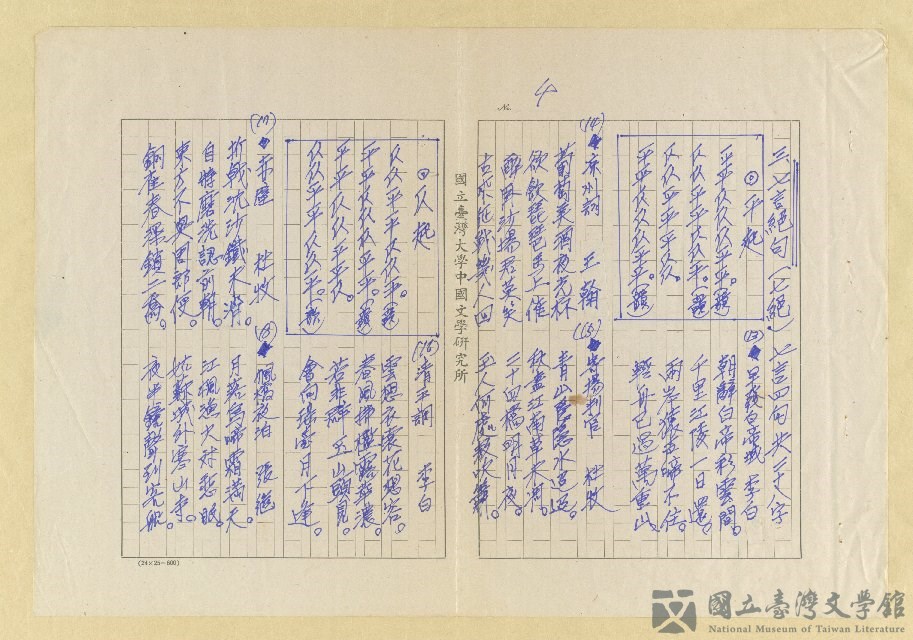 4
三、七言絕句（七絕）七言四句共廿八字
◎平起
平平仄仄仄平平。(韻)
仄仄平平仄仄平。(韻)
仄仄平平平仄仄。
平平仄仄仄平平。(韻)
(13)早發白帝城 李白
朝辭白帝彩雲間。
千里江陵一日還。
兩岸猿声啼不住。
輕舟已過萬重山
(14)凉州詞 王翰
葡萄美酒夜光杯
欲飲琵琶馬上催
醉臥沙場君莫笑
古來征戰幾人回
(15)寄揚州判官 杜牧
青山隱隱水迢迢。
秋盡江南草木凋。
二十四橋明月夜。
玉人何處教吹簫。
國立臺灣大學中國文學研究所
◎仄起
仄仄平平仄仄平。(韻)
平平仄仄仄平平。(韻)
平平仄仄平平仄。
仄仄平平仄仄平。(韻)
(16)清平調 李白
雲想衣裳花想容。
春風拂檻露華濃。
若非群玉山頭見。
會向瑤台月下逢。
(17)赤壁 杜牧
折戟沉沙鐵未消。
自將磨洗認前朝。
東方不與周郎便。
銅雀春深鎖二喬。
(18)楓橋夜泊 張繼
月落烏啼霜滿天。
江楓漁火对愁眠。
姑蘇城外寒山寺。
夜半鐘聲到客船
(24×25=600)
國立臺灣文學館
National Museum of Taiwan Literature